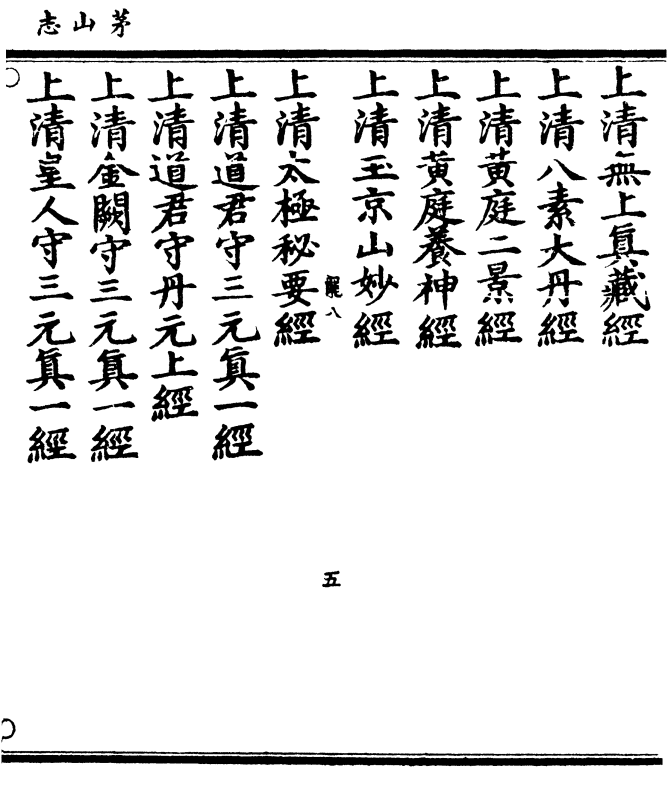 茅山志
上清無上真藏經
上清八素大丹經
上清黃庭二景經
上清黃庭養神經
上清玉京山妙經
龍八
五
上清太極秘要經
上清道君守三元真一經
上清道君守丹元上經
上清金闕守三元真一經
上清皇人守三元真一經